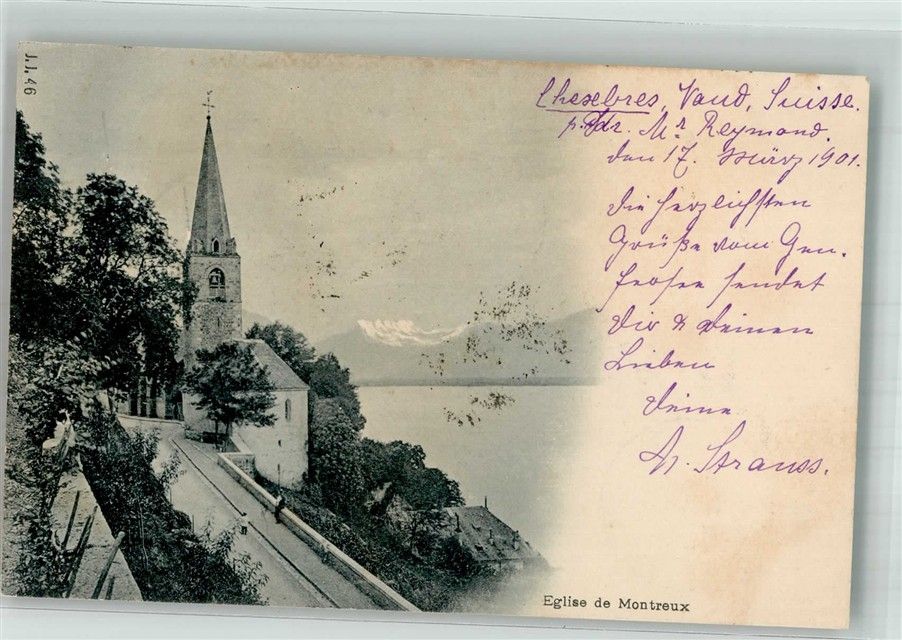 J.J. 46
Chexbres, Vaud, Suisse.
p. Adr. Mr Reymond.
den 17. März 1901.
Die herzlichsten
Grüße vom Gen-
fersee sendet
Dir & Deinen
Lieben
Deine
Strauss.
Eglise de Montreux